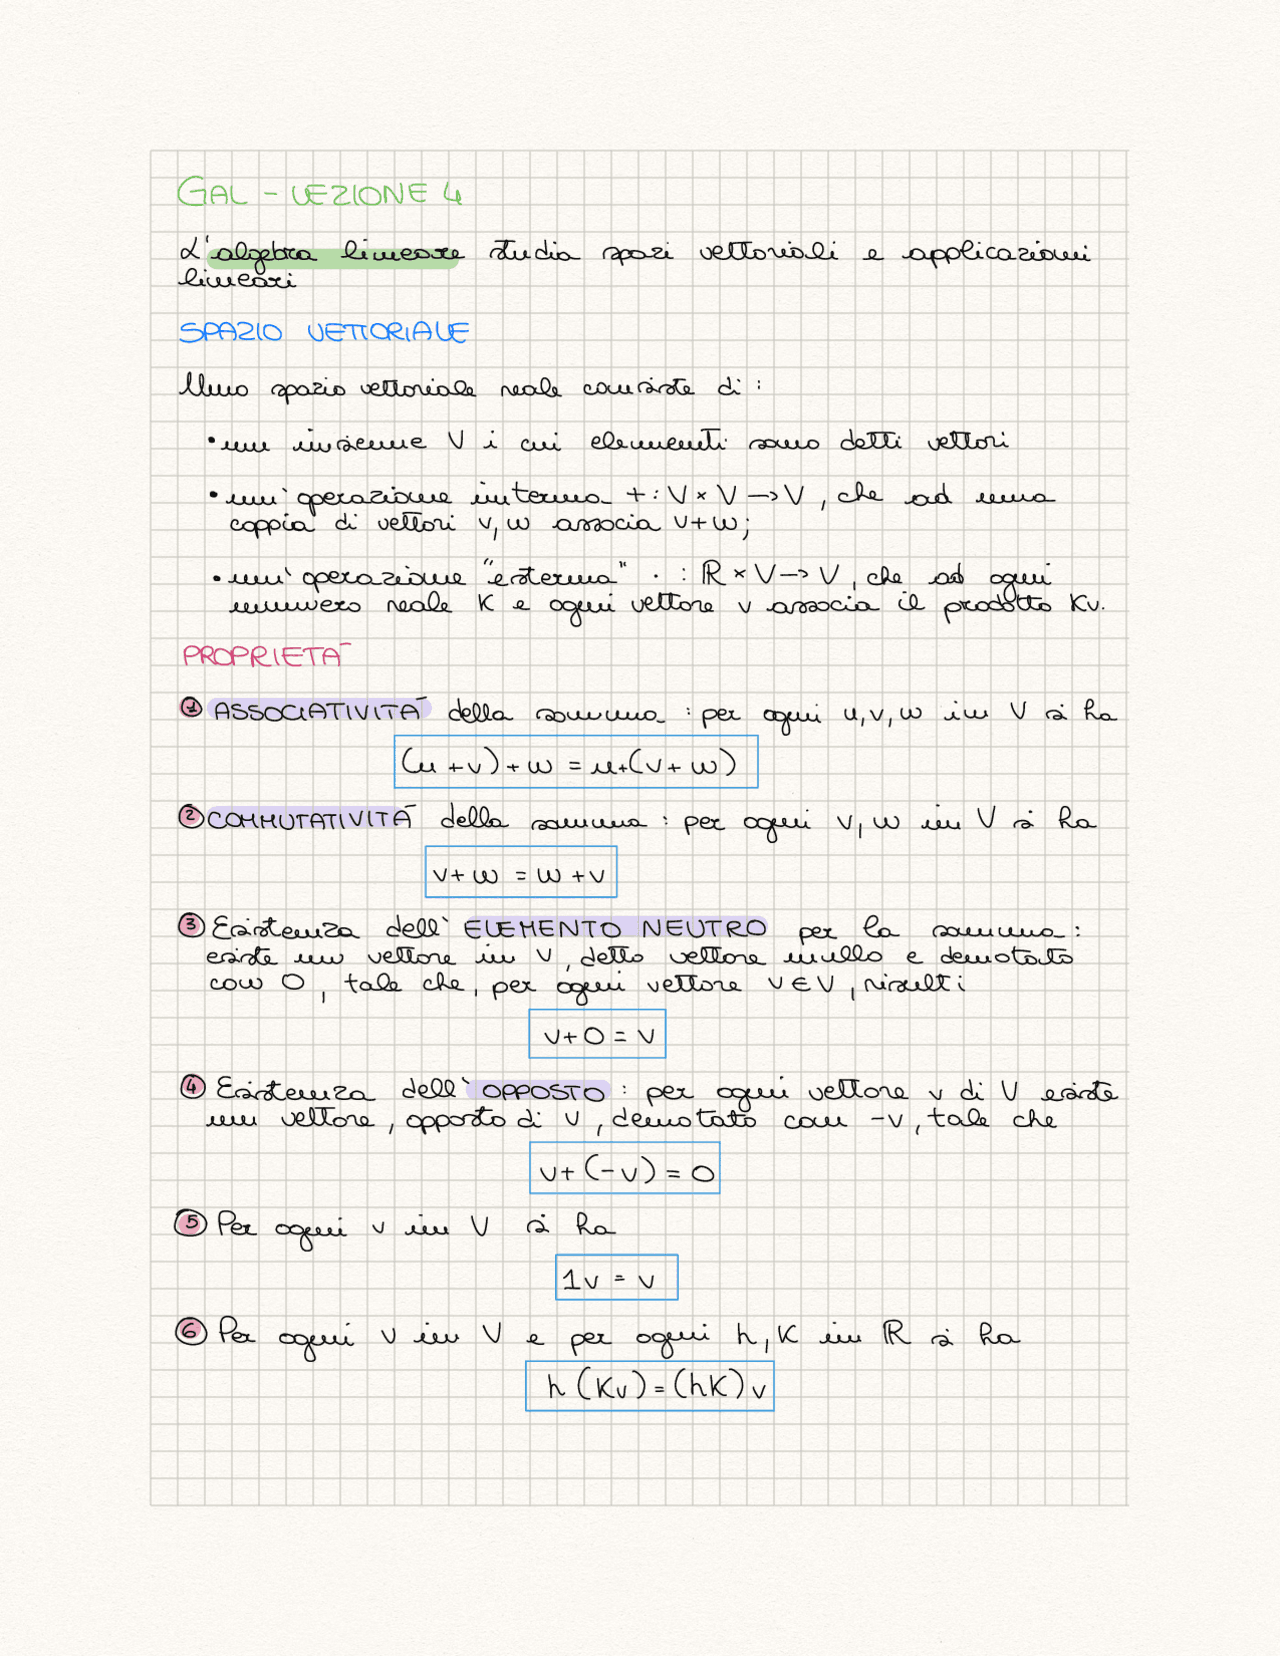 GAL - LEZIONE 4
L'algebra lineare studia spazi vettoriali e applicazioni
lineari
SPAZIO VETTORIALE
Uno spazio vettoriale reale consiste di :
•un insieme V i cui elementi sono detti vettori
•un'operazione interna + : V × V → V , che ad una
coppia di vettori v, w associa v + w ;
•un'operazione "esterna" · : ℝ × V → V , che ad ogni
numero reale K e ogni vettore v associa il prodotto Kv.
PROPRIETÀ
1 ASSOCIATIVITÀ della somma : per ogni u, v, w in V si ha
(u + v) + w = u + (v + w)
2 COMMUTATIVITÀ della somma : per ogni v, w in V si ha
v + w = w + v
3 Esistenza dell'ELEMENTO NEUTRO per la somma :
esiste un vettore in V, detto vettore nullo e denotato
con 0 , tale che, per ogni vettore v ∈ V , risulti
v + 0 = v
4 Esistenza dell'OPPOSTO : per ogni vettore v di V esiste
un vettore , opposto di v , denotato con -v , tale che
v + (-v) = 0
5 Per ogni v in V si ha
1v = v
6 Per ogni v in V e per ogni h, K in ℝ si ha
h (Kv) = (hK) v